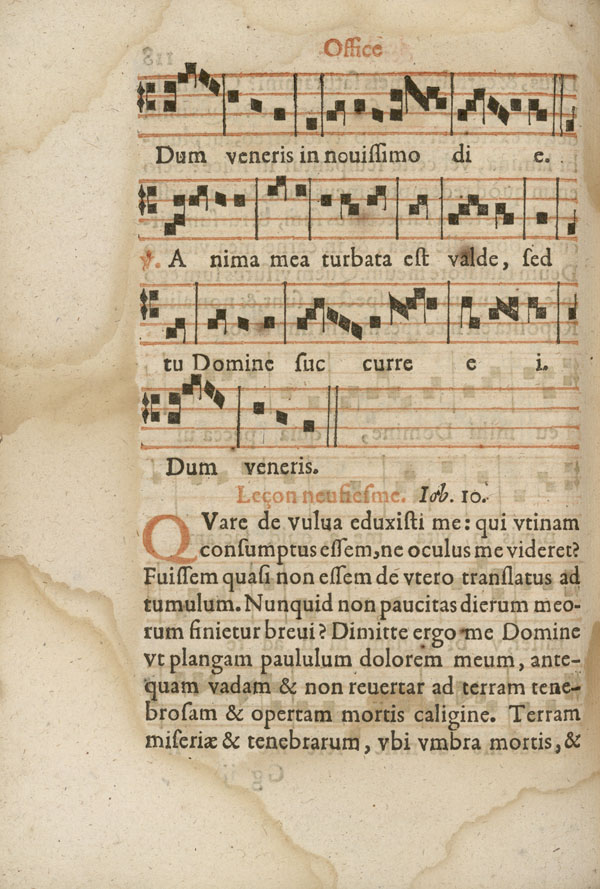 Office
Dum veneris in nouiſſimo di e.
℣. A nima mea turbata eſt valde, ſed
tu Domine ſuc curre e i.
Dum veneris.
Leçon neufieſme. Iob. 10.
QVare de vulua eduxiſti me: qui vtinam
conſumptus eſſem, ne oculus me videret?
Fuiſſem quaſi non eſſem de vtero tranſlatus ad
tumulum. Nunquid non paucitas dierum meo-
rum finietur breui? Dimitte ergo me Domine
vt plangam paululum dolorem meum, ante-
quam vadam & non reuertar ad terram tene-
broſam & opertam mortis caligine. Terram
miſeriæ & tenebrarum, vbi vmbra mortis, &